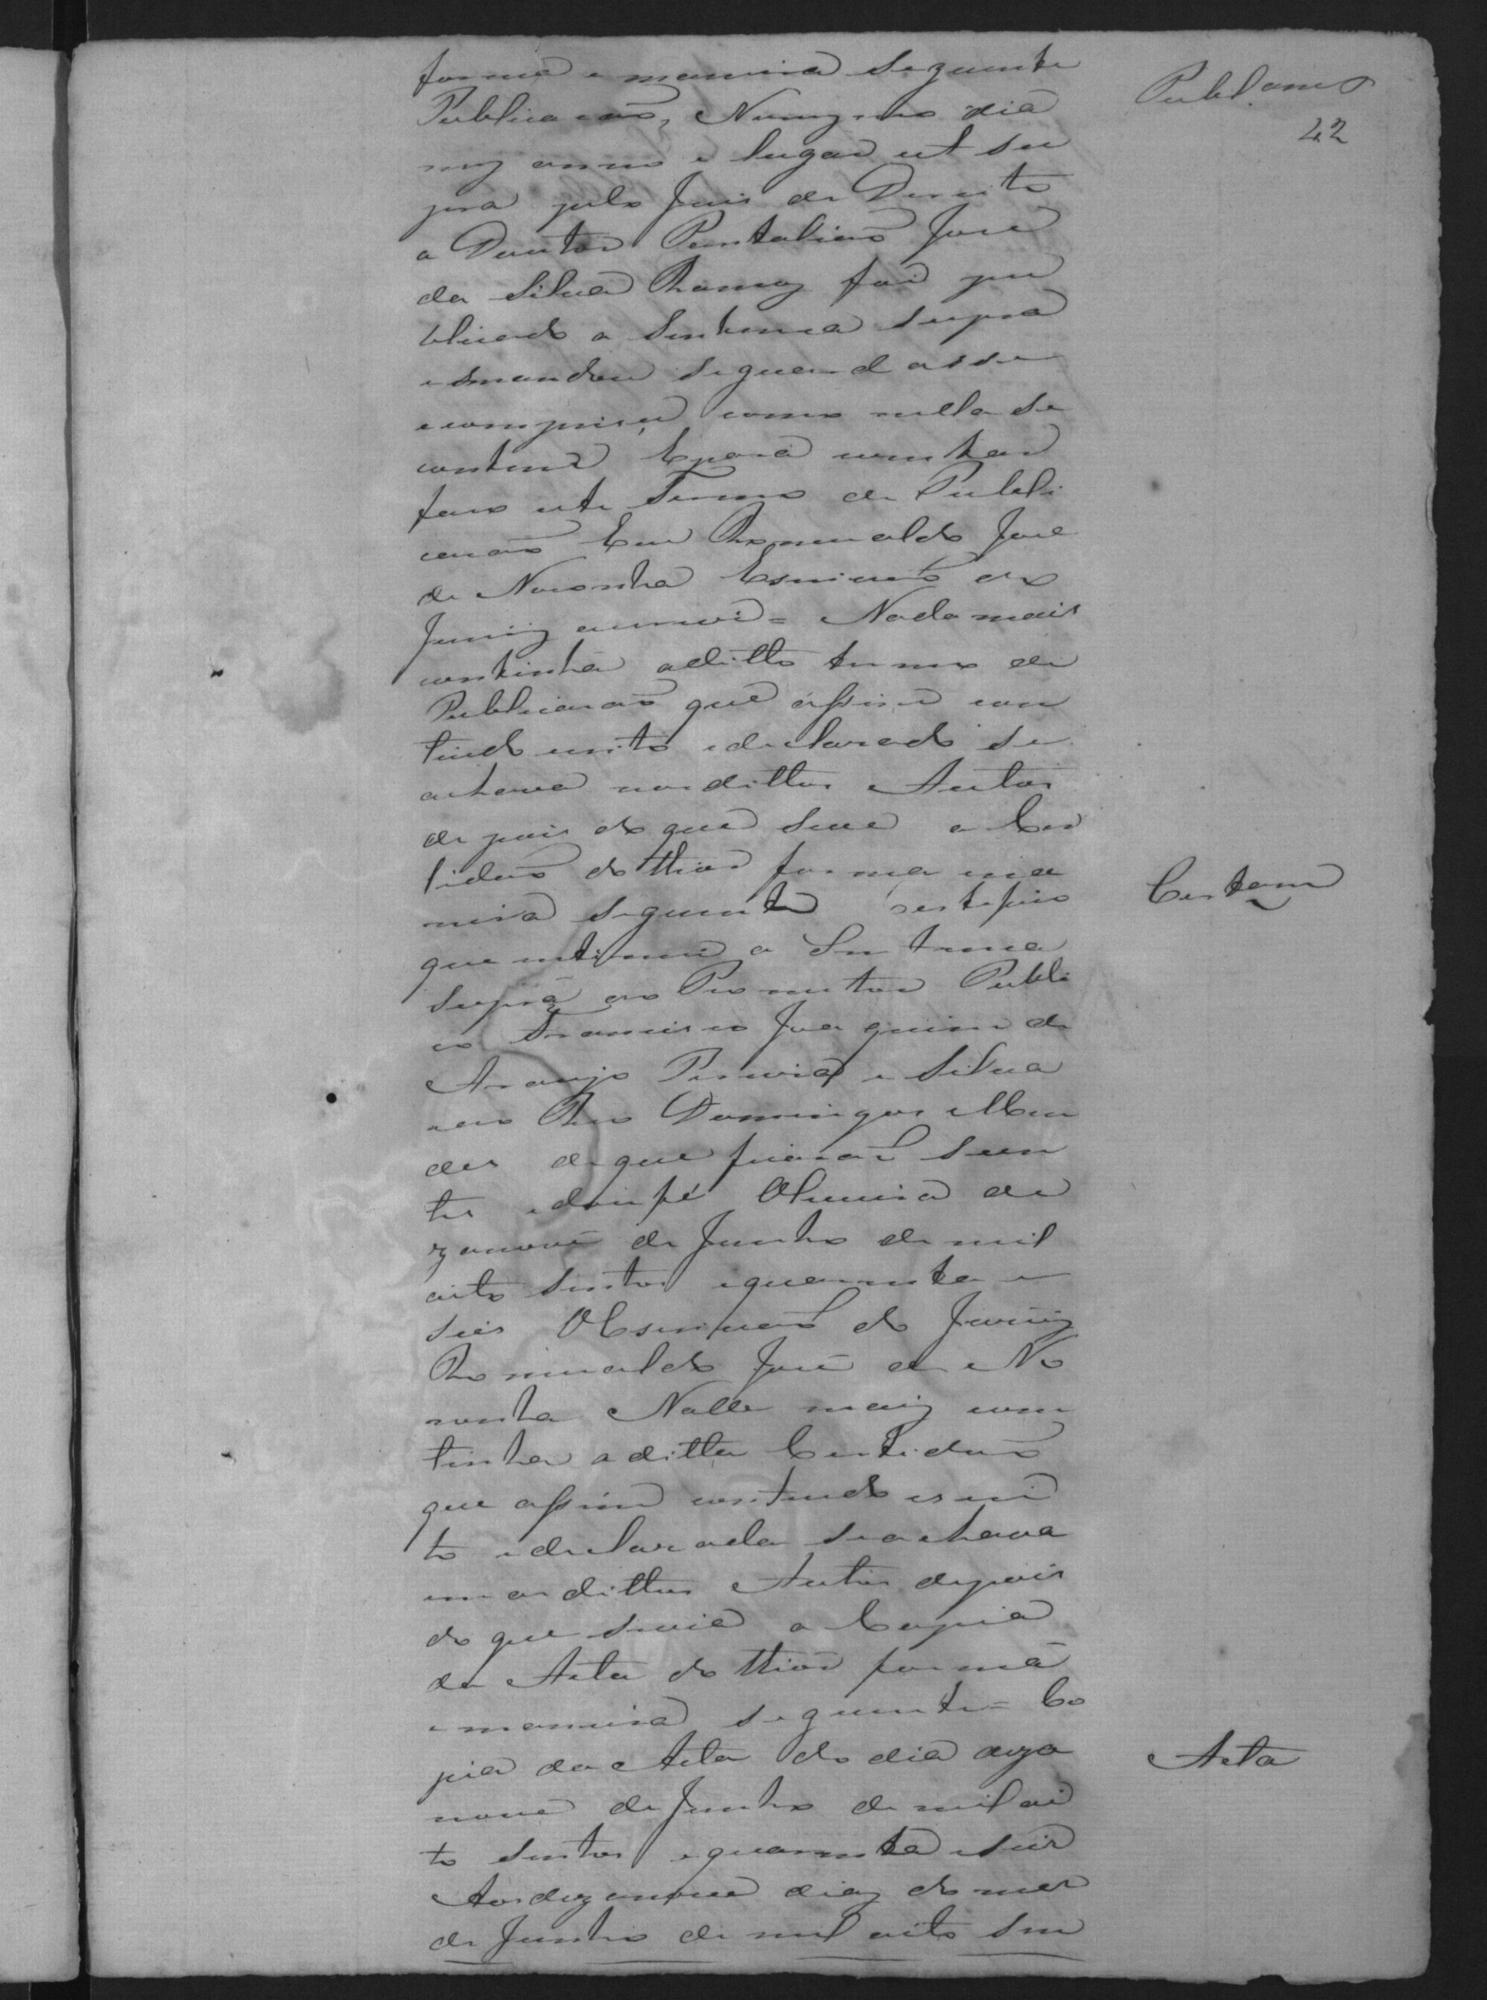 forma e maneira Seguinte
Publicacaõ, No mesmo dia
mez anno e lugar ut Su
pra pelo Juis de Direito
o Doutor Pantaliaõ José
da Silva Ramos foi pu
blicado a Sentenca Supra
e mandou Seguard asse
e comprisse como nella Se
contem E para constar
faco este Termo de Publi
cacaõ Eu Romualdo José
de Noronha Escrivaõ do
Jury escrevi = Nada mais
continha a ditto termo de
Publicacaõ que assim con
tiudo escrito e declarado Se
achava nos dittos Autos
depois do que Seue a Cer
tidaõ do thior forma e ma
neira Seguinte Certefico
que intimei a Sentenca
Supra ao Promotor Publi
co Francisco Joaquim de
Araujo Pereira e Silva
e ao Reo Domingos Men
des de que ficaraõ Scien
tes e dou fé Oliveira de
zanove de Junho de mil
oito Sentos e quarenta e
Seis O Escrivaõ do Jury
Romualdo José de No
ronha Nada mais con
tinha a ditta Certidaõ
que assim contiudo escri
to e declarada Se achava
em os dittos Autos depois
do que Seuia a Copia
da Acta do thior forma
e maneira Seguinte = Co
pia da Acta do dia deza
nove de Junho de mil oi
to Sentos e quarenta e Seis
Aos dezanove dias do mes
de Junho de mil oito Sen
Publ.am
42
Certam
Acta